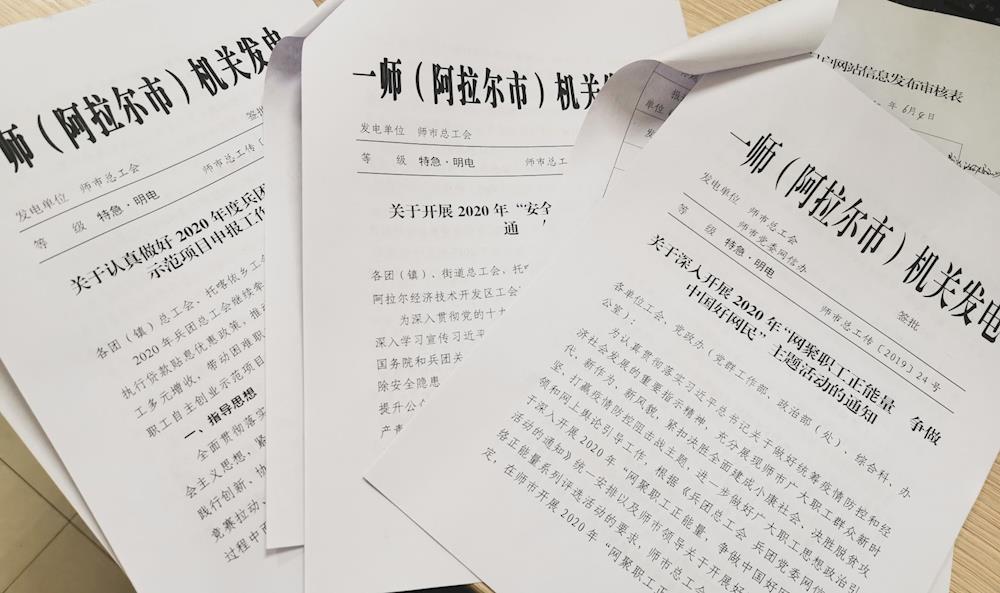 师（阿拉尔市）机关发电
发电单位 师市总工会
签批
等 级 特急·明电
师市总工传〔
关于认真做好 2020 年度兵团
示范项目申报工作
各团（镇）总工会、托喀依乡工会
2020 年兵团总工会继续
执行贷款贴息优惠政策，推
工多元增收，带动困难职
职工自主创业示范项目
一、指导思想
全面贯彻落实
会主义思想，紧
践行创新、协
竞赛拉动
过程中
一师（阿拉尔市）机关
发电单位 师市总工会
等 级 特急·明电
师市总工
关于开展 2020 年“安全
通
各团（镇）、街道总工会、托
阿拉尔经济技术开发区工会
为深入贯彻党的十九
深入学习宣传习近平
国务院和兵团关
除安全隐患
提升公
产责
单位
网站信息发布审核表
年 6月
日
一师（阿拉尔市）机关发电
发电单位 师市总工会
师市党委网信办
签批
等 级 特急·明电
师市总工传〔2019〕24 号
关于深入开展 2020 年“网聚职工正能量 争做
中国好网民”主题活动的通知
各单位工会、党政办（党群工作部、政治部（处）、综合科、办
公室）：
为认真贯彻落实习近平总书记关于做好统筹疫情防控和经
济社会发展的重要指示精神，充分展现师市广大职工群众新时
代、新作为、新风貌，紧扣决胜全面建成小康社会、决胜脱贫攻
坚、打赢疫情防控阻击战主题，进一步做好广大职工思想政治引
领和网上舆论引导工作，根据《兵团总工会 兵团党委网信
于深入开展 2020 年“网聚职工正能量，争做中国好网
活动的通知》统一安排以及师市领导关于开展好
络正能量系列评选活动的要求，师市总工会
定，在师市开展 2020 年“网聚职工正